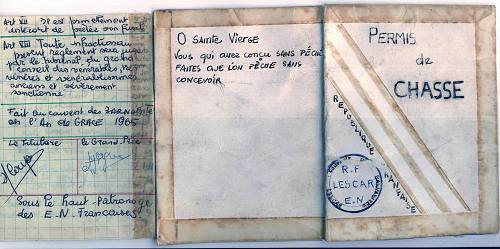 Art VII Il est formellement
interdit de prêter son fusil
Art VIII Toute infraction
au présent règlement sera jugée
par le tribunal du grand
conseil des vénérables,
et vénérabilissimes
anciens et sévèrement
sanctionné
Fait au couvent des
en l'An de GRACE 1965
Le Titulaire le Grand
Sous le haut Patronage
des E.N. Françaises
O SAINTE VIERGE
VOUS QUI AVEZ CONÇU SANS PÉCHÉ
FAITES QUE L'ON PÊCHE SANS
CONCEVOIR
PERMIS
de
CHASSE
REPUBLIQUE
FRANÇAISE
R.F
LESCAR
E.N